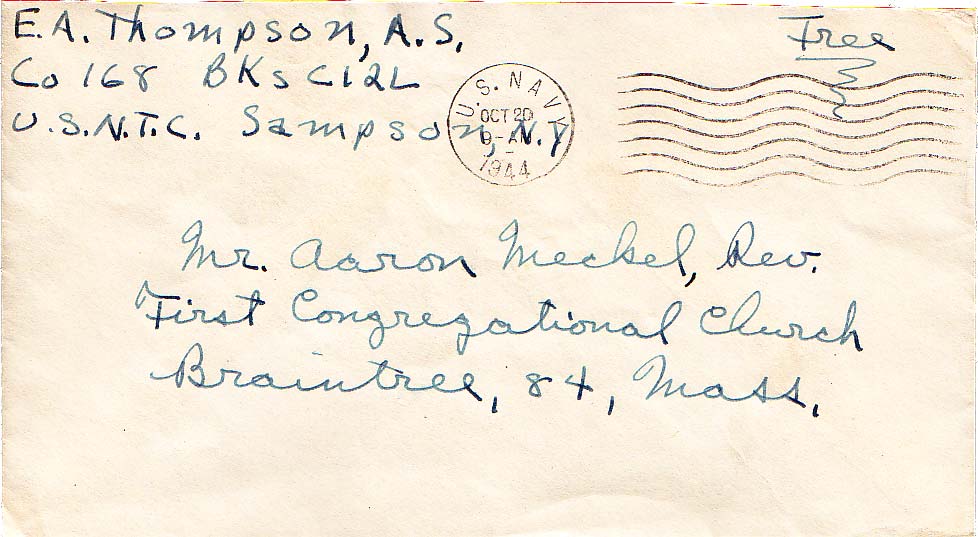 E.A. Thompson, A.S.
Co 168 BKs C12L
U.S.N.T.C. Sampson, N.Y
Free
U.S. NAVY
OCT 20
9-AM
1944
Mr. Aaron Meckel, Rev.
First Congregational Church
Braintree, 84, Mass.